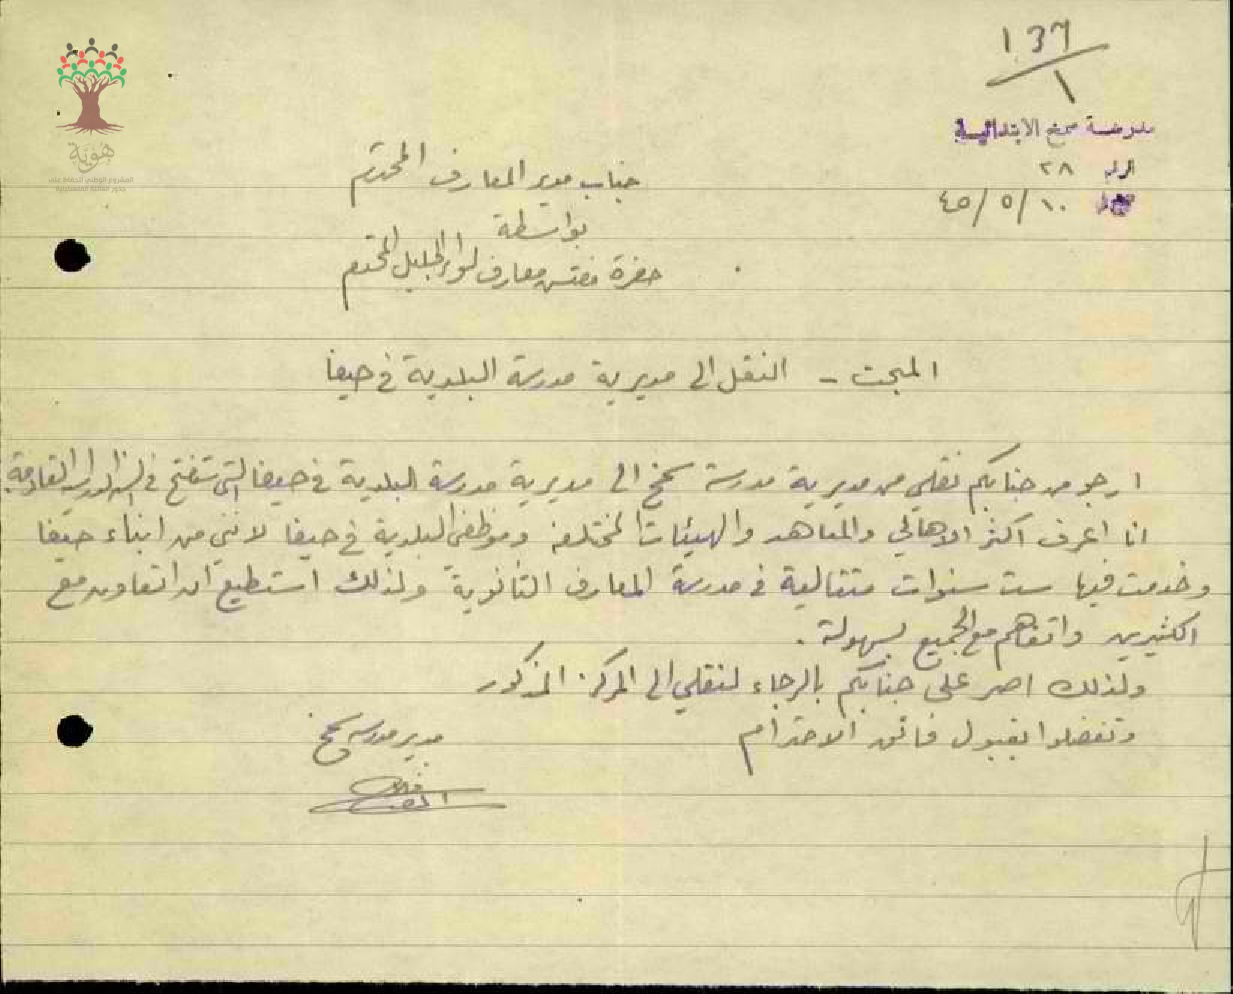 ١٣٦
١
مدرسة سمخ الابتدائية
الرقم ٢٨
٤٥/٥/١٠
هوية
المشروع الوطني للحفاظ على
جذور العائلة الفلسطينية
جناب مدير المعارف المحترم
بواسطة
حضرة مفتش معارف لواء الجليل المحترم
المبحث - النقل الى مديرية مدرسة البلدية في حيفا
ارجو من جنابكم نقلي من مديرية مدرسة سمخ الى مديرية مدرسة البلدية في حيفا التي ستفتح في السنة الدراسية القادمة
انا اعرف اكثر الاهالي والمعاهد والهيئات المختلفة وموظفي البلدية في حيفا لانني من ابناء حيفا
وخدمت فيها ست سنوات متتالية في مدرسة المعارف الثانوية ولذلك استطيع ان اتعاون مع
الكثيرين واتفاهم مع الجميع بسهولة.
ولذلك اصر على جنابكم بالرجاء لنقلي الى المركز المذكور
وتفضلوا بقبول فائق الاحترام
مدير مدرسة سمخ